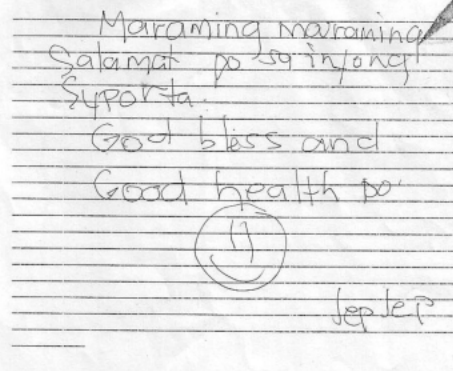 Maraming maraming
Salamat po sa inyong
Suporta.
God bless and
Good health po.
Jep Jep